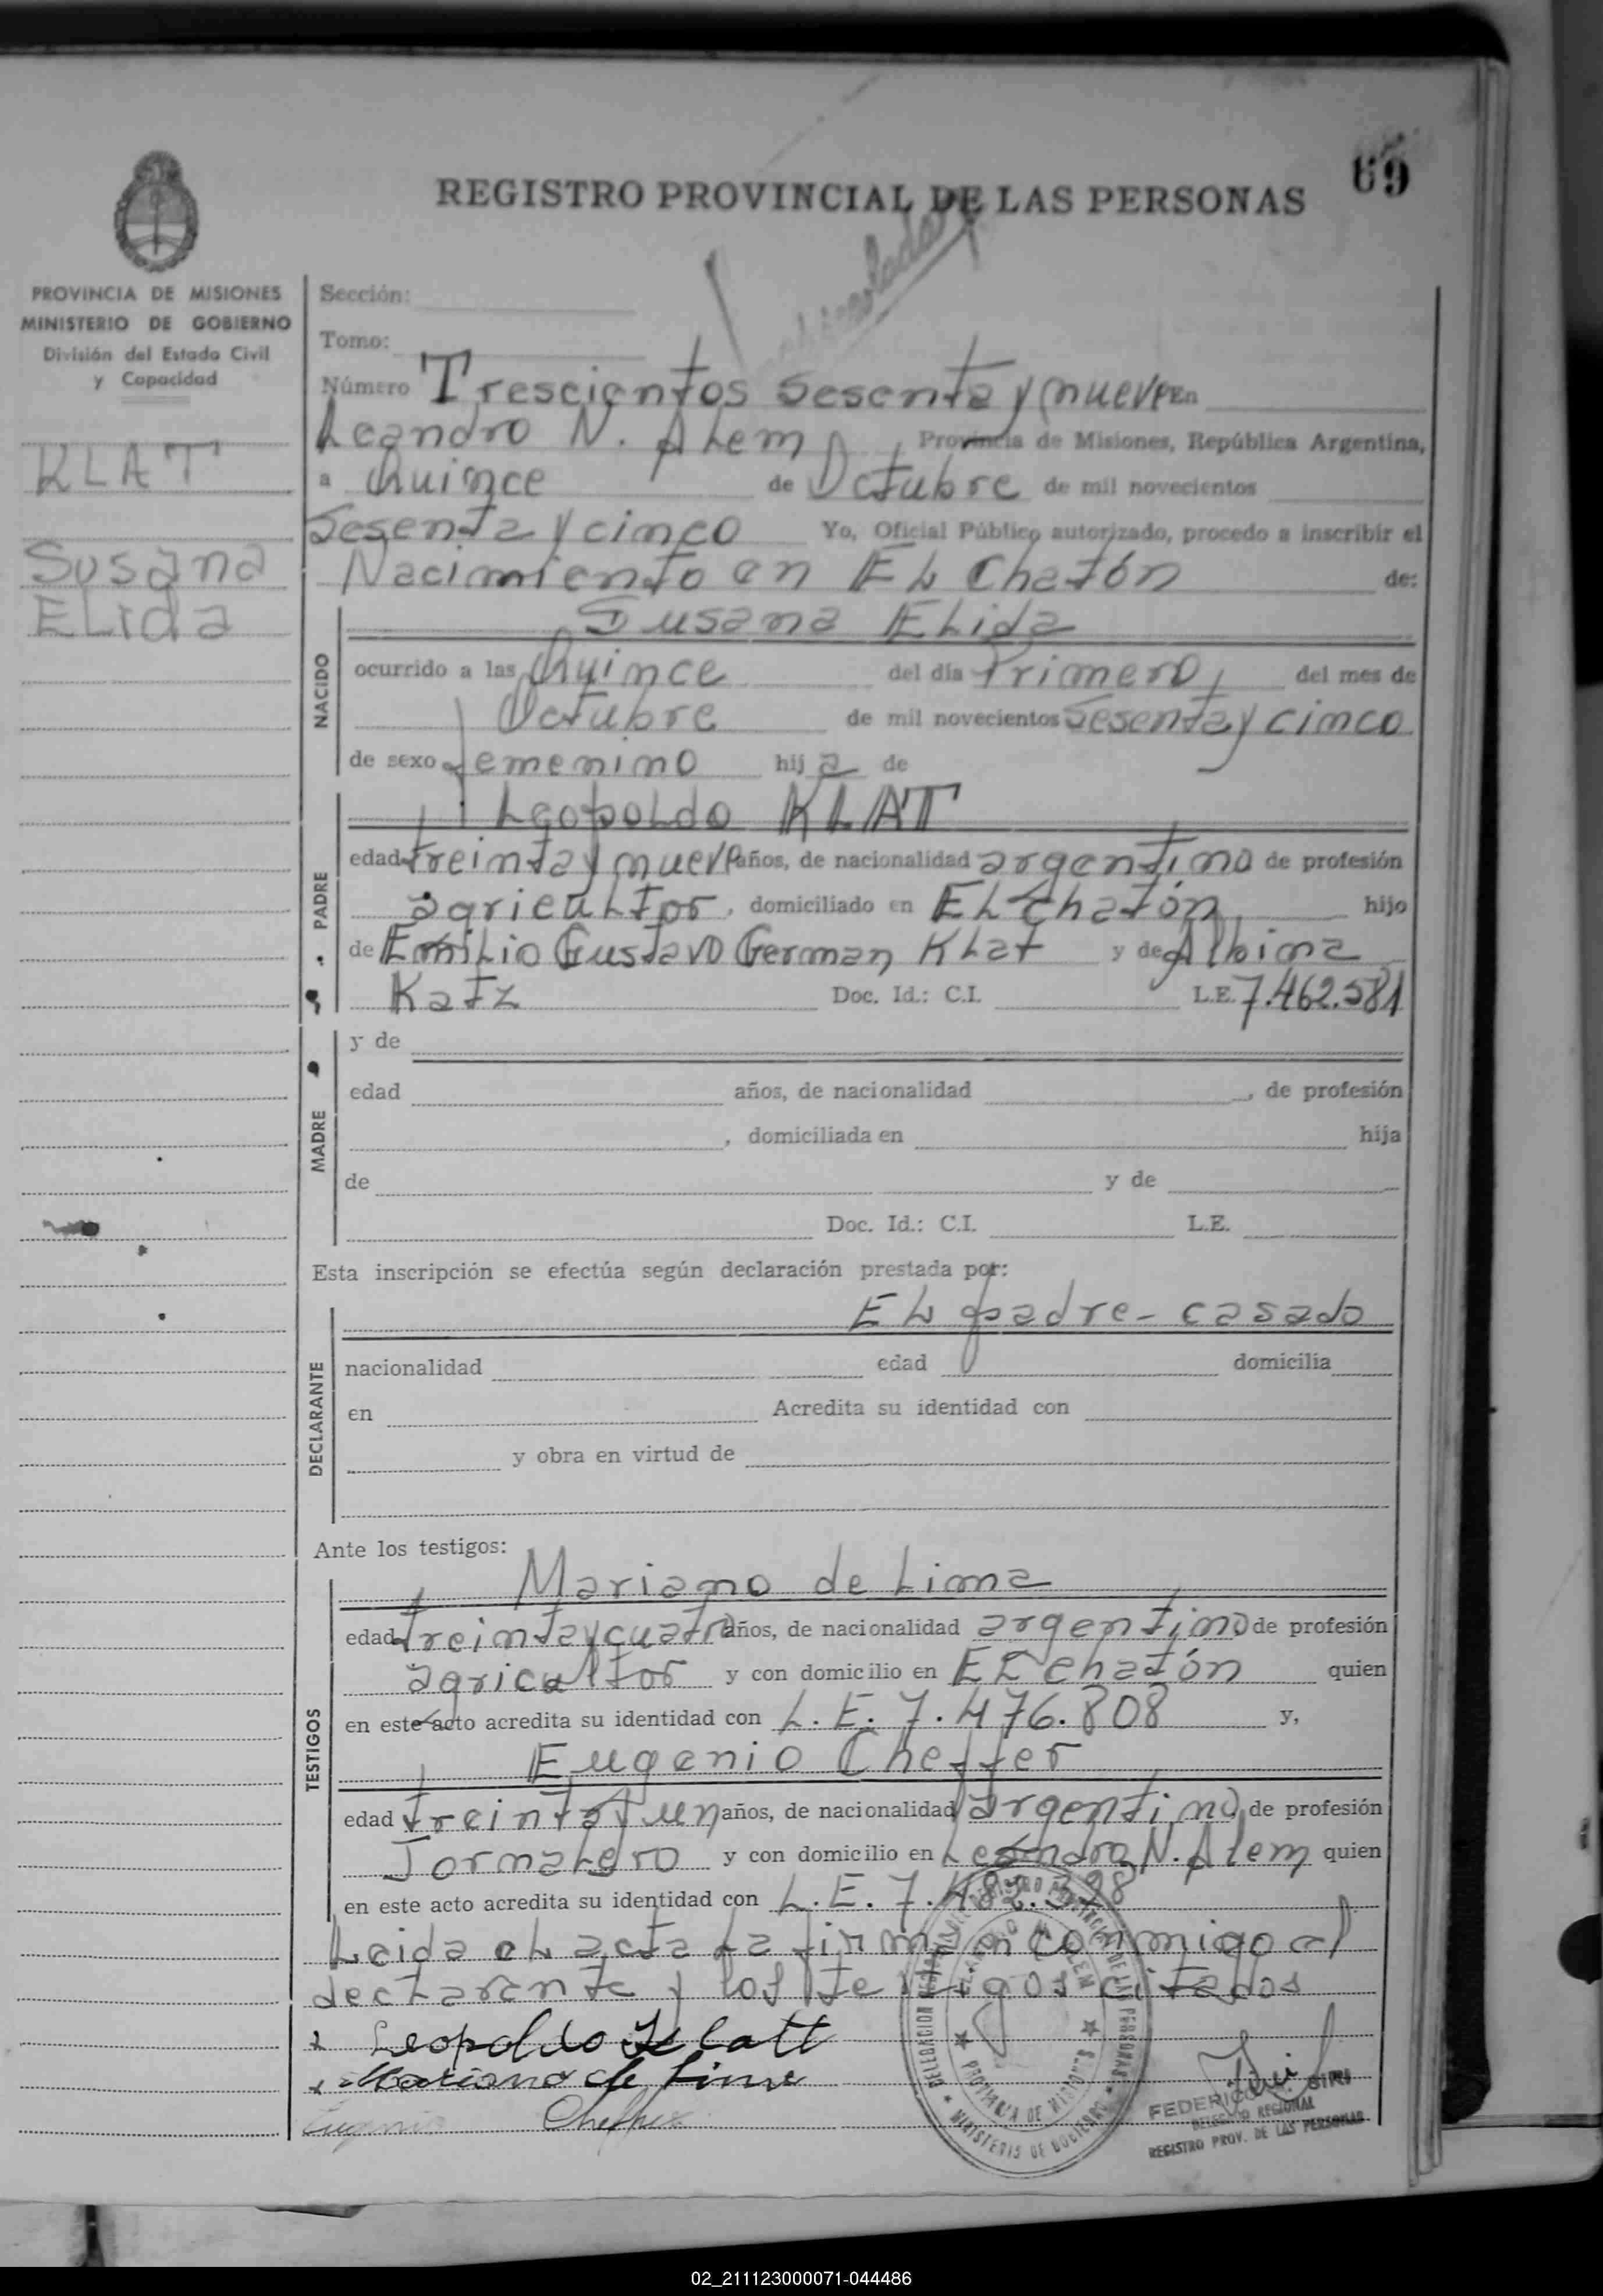 69
REGISTRO PROVINCIAL DE LAS PERSONAS
PROVINCIA DE MISIONES
MINISTERIO DE GOBIERNO
División del Estado Civil
y Capacidad
KLAT
Susana
ELida
Sección:
Tomo:
Número Trescientos sesenta y nueve En
Leandro N. ALem, Provincia de Misiones, República Argentina,
a Quince de Octubre de mil novecientos
Sesenta y cinco Yo, Oficial Público autorizado, procedo a inscribir el
Nacimiento en EL Chatón de:
NACIDO
Susana ELida
ocurrido a las Quince del día Primero, del mes de
Octubre de mil novecientos Sesenta y cinco
de sexo femenino hij a de
PADRE
Leopoldo KLAT
edad treinta y nueve años, de nacionalidad argentino de profesión
agricultor, domiciliado en EL Chatón, hijo
de Emilio Gustavo German KLat y de Albina
Katz Doc. Id.: C.I. L.E. 7.462.581
MADRE
y de
edad años, de nacionalidad , de profesión
, domiciliada en hija
de y de
Doc. Id.: C.I. L.E.
Esta inscripción se efectúa según declaración prestada por:
DECLARANTE
EL padre - casado
nacionalidad edad domicilia
en Acredita su identidad con
y obra en virtud de
Ante los testigos:
TESTIGOS
Mariano de Lima
edad treinta y cuatro años, de nacionalidad argentino de profesión
agricultor y con domicilio en EL Chatón quien
en este acto acredita su identidad con L.E. 7.476.808 y,
Eugenio Cheffer
edad treinta y un años, de nacionalidad argentino, de profesión
JornaLero y con domicilio en Leandro N. Alem quien
en este acto acredita su identidad con L.E. 7.482.398
Leida eL acta La firman conmigo el
decLarante y los testigos citados
x Leopoldo Klatt
x Mariano de Lima
Eugenio Cheffer
DELEGACION REGISTRO PROVINCIAL DE LAS PERSONAS
LEANDRO N. ALEM
PROVINCIA DE MISIONES
MINISTERIO DE GOBIERNO
FEDERICO SIRI
DELEGADO REGIONAL
REGISTRO PROV. DE LAS PERSONAS
02_211123000071-044486